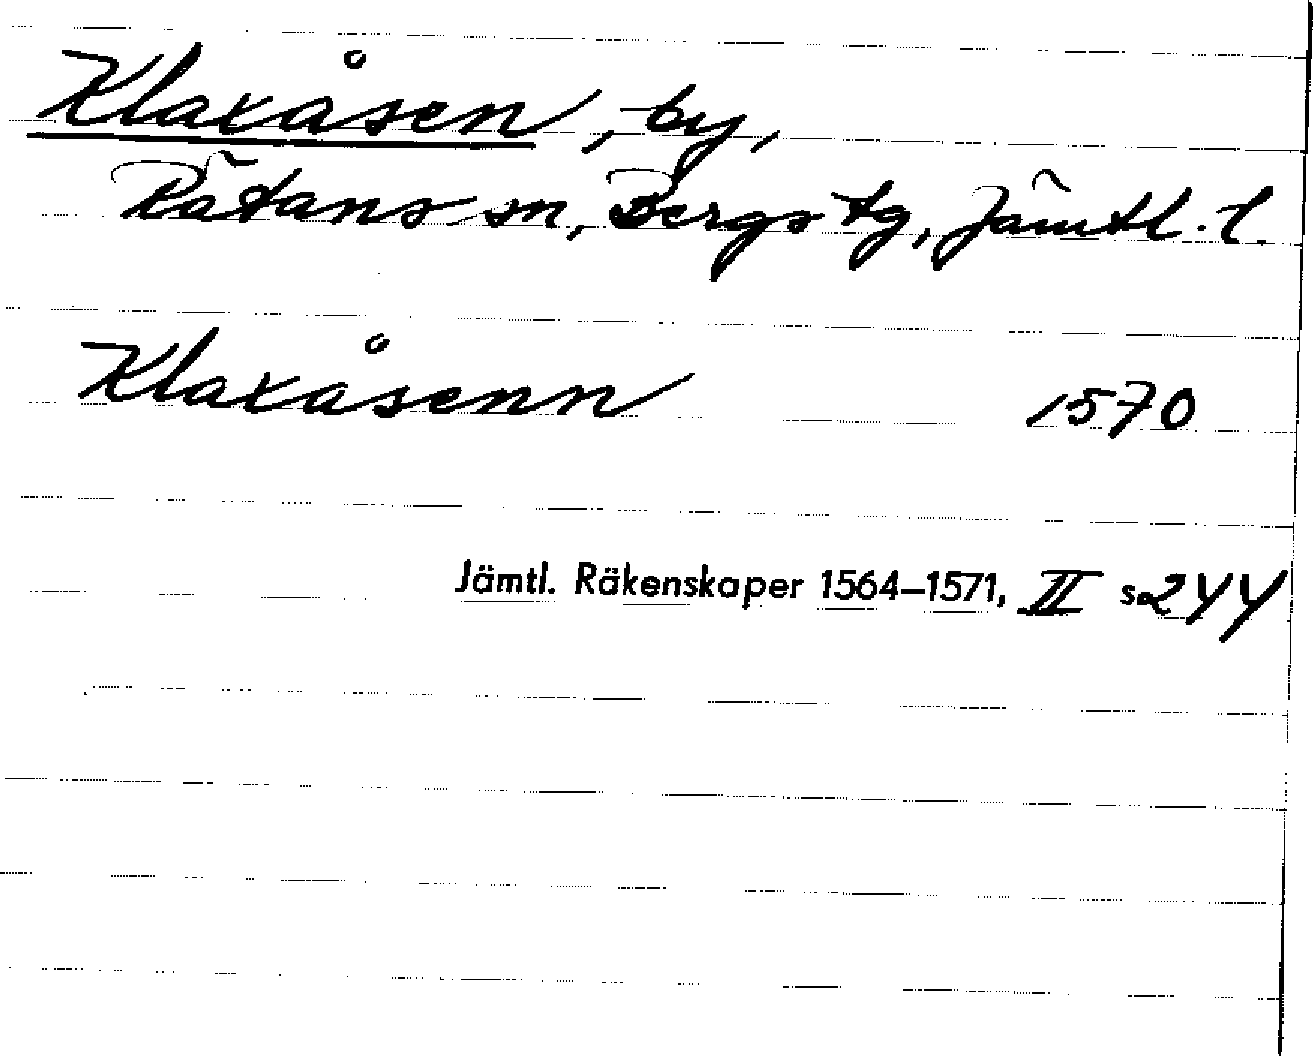 Klaxåsen, by,
Rätans sn, Bergs tg, Jämtl. l.
Klaxåsenn 1570
Jämtl. Räkenskaper 1564–1571, II s. 244